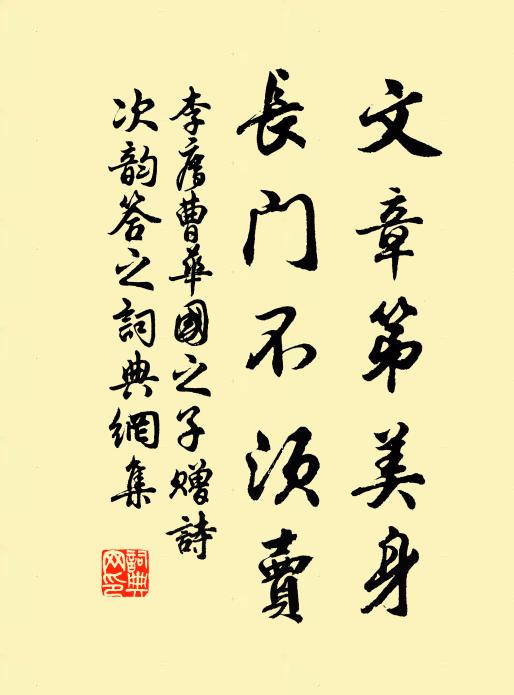 文章第美身
長門不須賣
李庿曹華國之子贈詩
次韵答之詞典網集
詞典网印